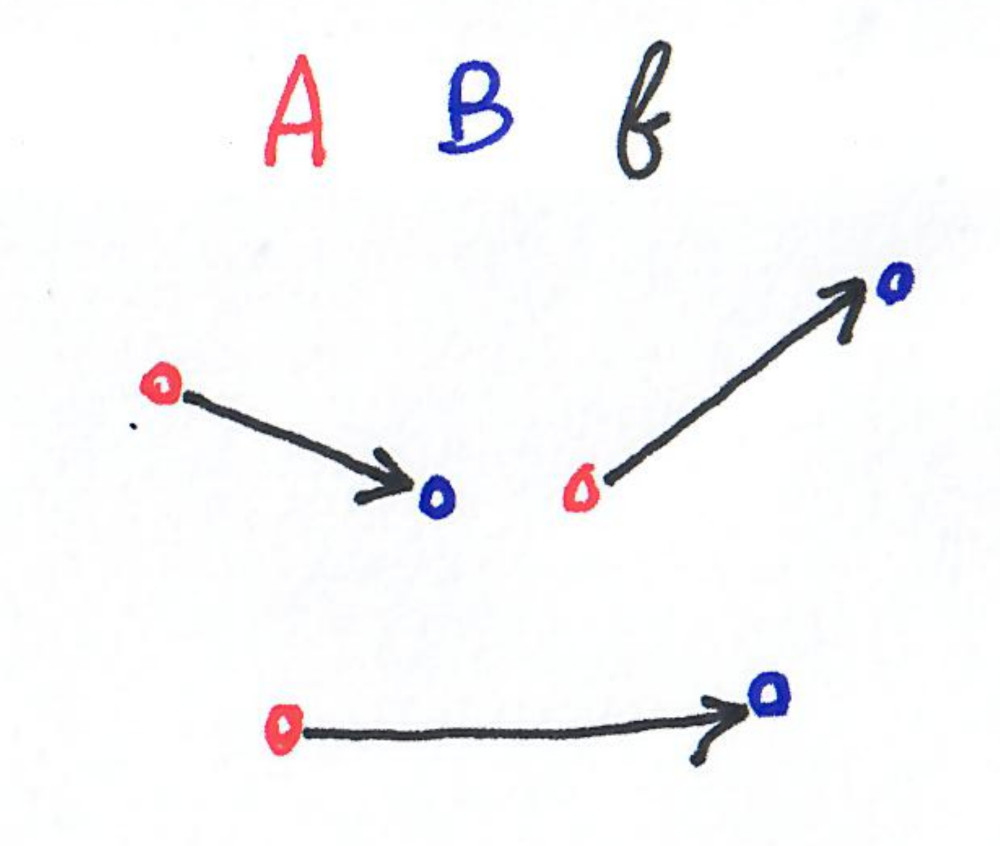 A B f